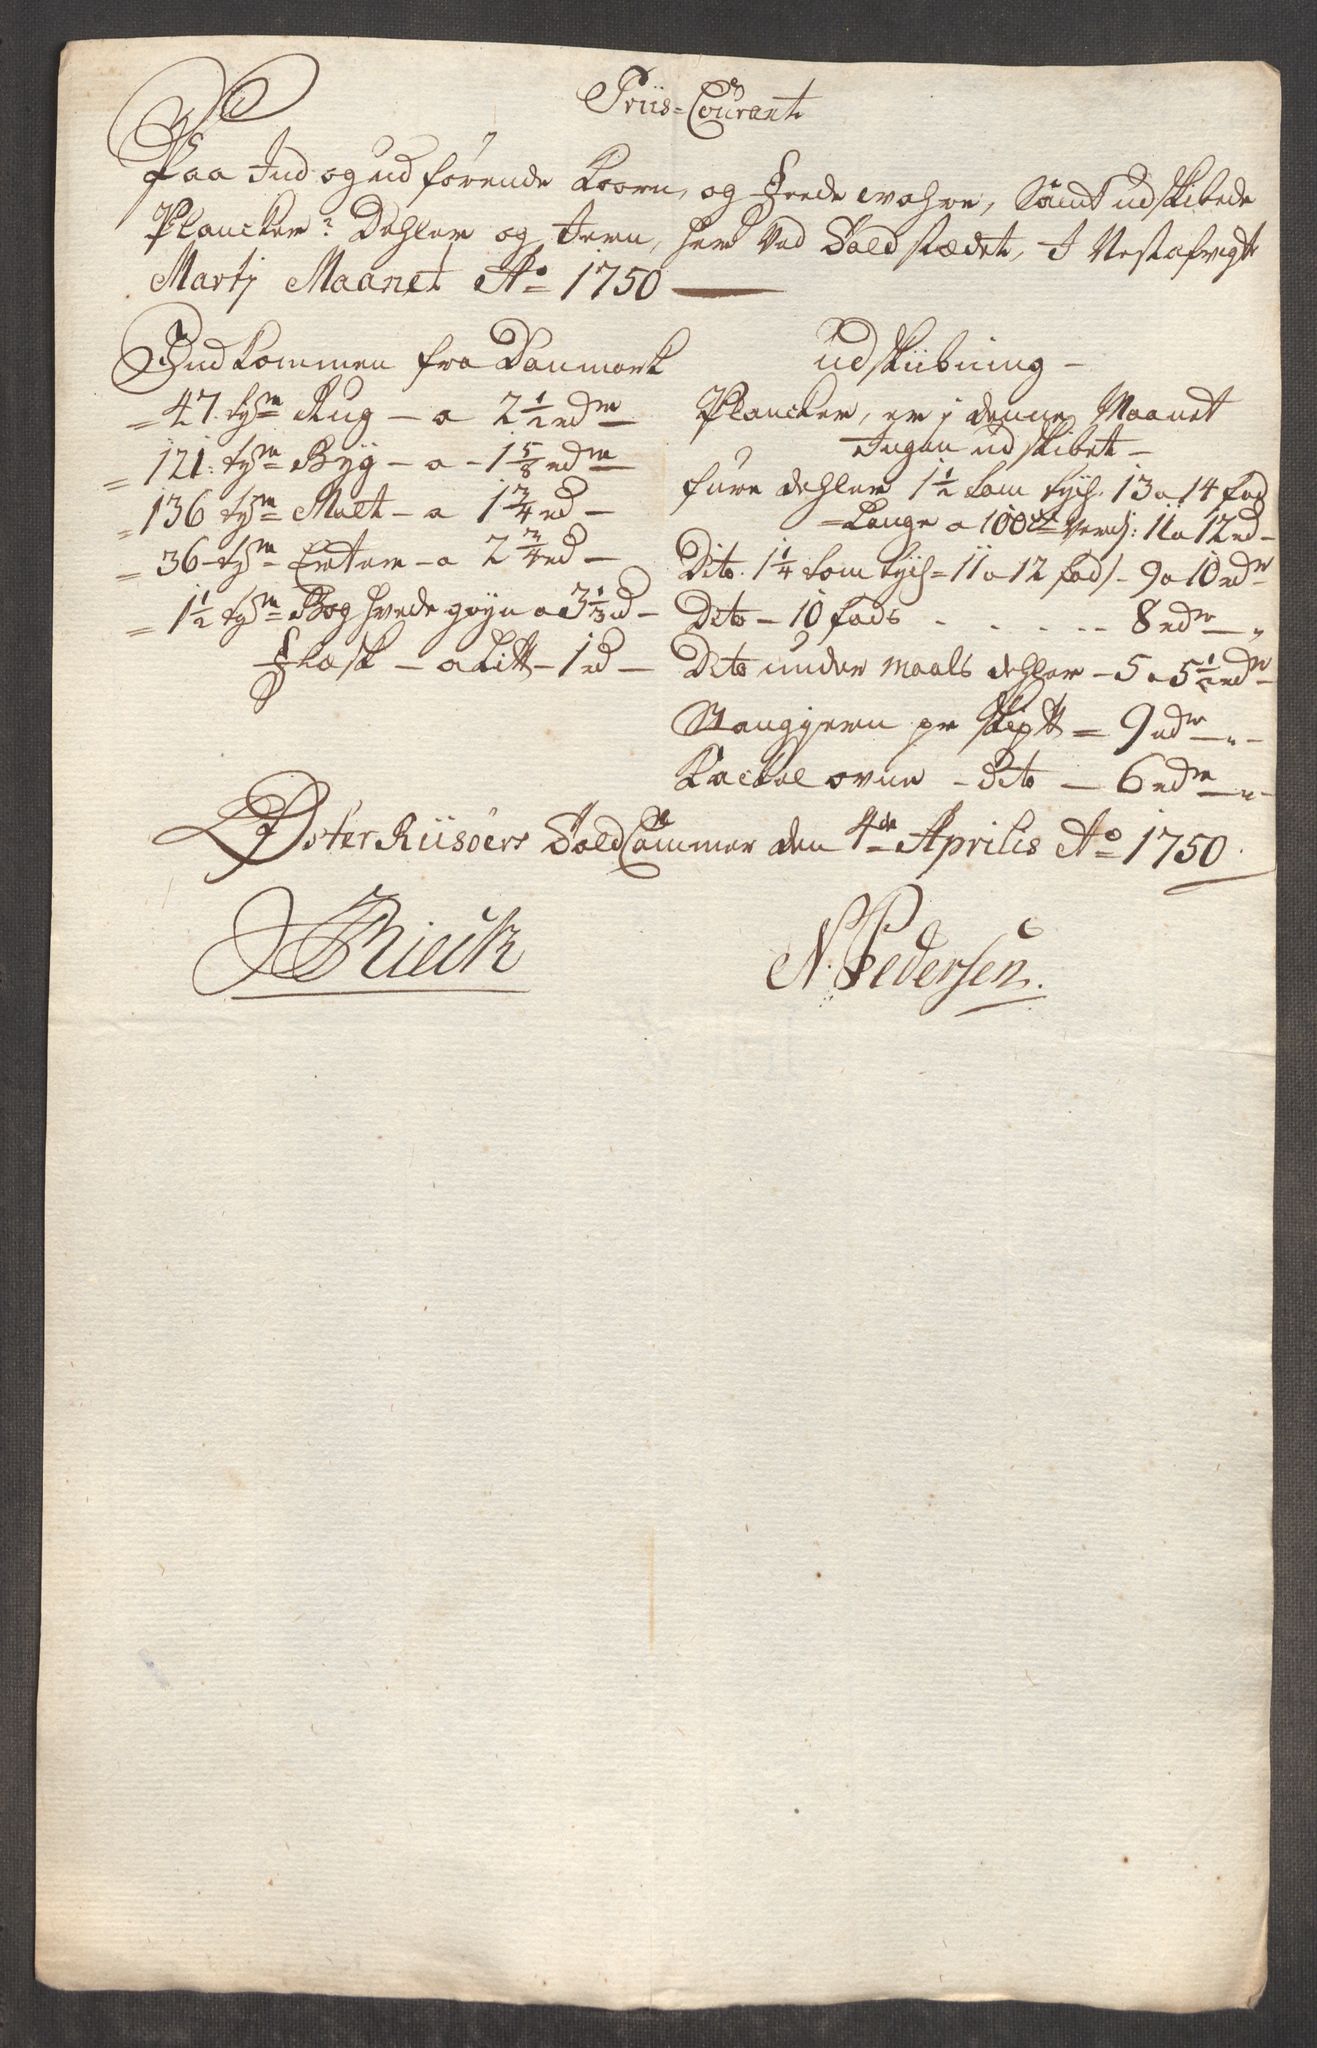 Priis-Courant
Paa Ind og udførende Koorn, og Fede wahre, Samt udskibede
Plancker: Dehler og Jern, her ved Toldstædet, I Nestafvigte
Martj Maanet Ao 1750
Indkommen fra Danmark
47 tør Rug - a 2 1/2 rdr
121: tør Byg - a - 1 5/8 rdr
136 tør Malt - a 1 3/4 rd -
36 - tør Erter - a 2 3/4 rd -
1 1/2 tør Boghvede gryn a 3 1/3 rd -
Flæsk - a Litt - 1 rd -
udskiibning -
Plancker, er j denne Maanet
Ingen udskibet -
fure dehler 1 1/2 tom tyck. 13 a 14 fod
Lange a 100de Verdj: 11 a 12 rd -
Dito. 1 1/4 tom tyck = 11 a 12 fods - 9 a 10 rdr
Dito - 10 fods - - - - - 8 rdr - "
Dito under maals dehler - 5 a 5 1/2 rdr
Stangjern pr skiptt = 9 rdr - " -
Kackelovne - Dito - 6 rdr - " -
Øster Riisøers Told Cammer den 4de Aprilis Ao 1750.
Rieck
N. Pedersen.